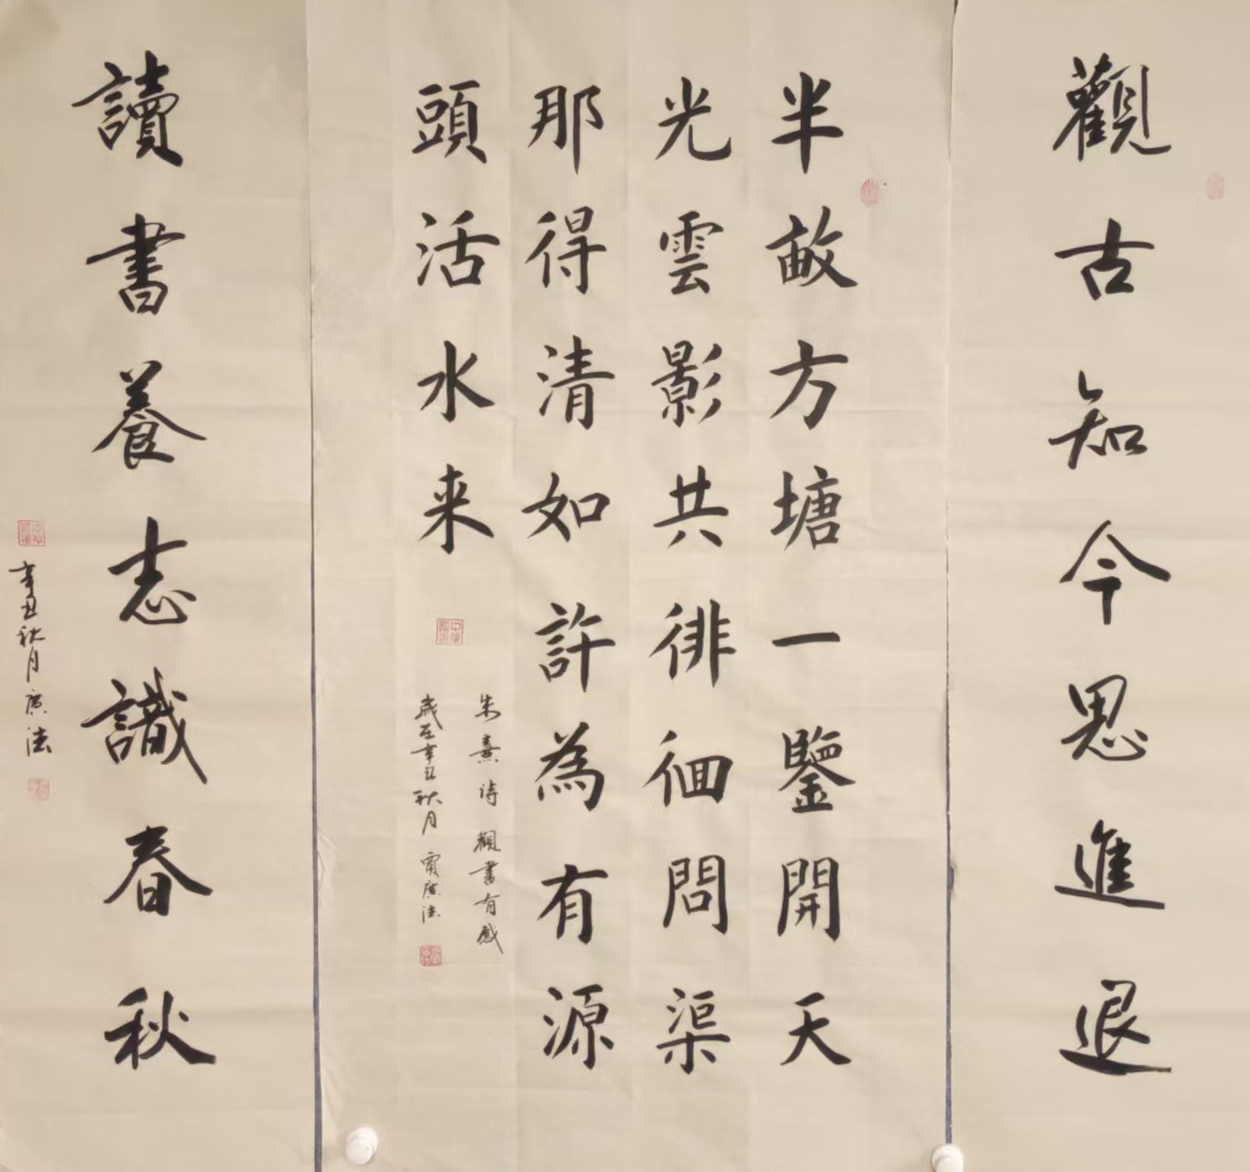 觀古知今思進退
半畝方塘一鑒開天
光雲影共徘徊問渠
那得清如許為有源
頭活水来
朱熹詩觀書有感
歲在辛丑秋月賈廣法
讀書養志識春秋
辛丑秋月廣法